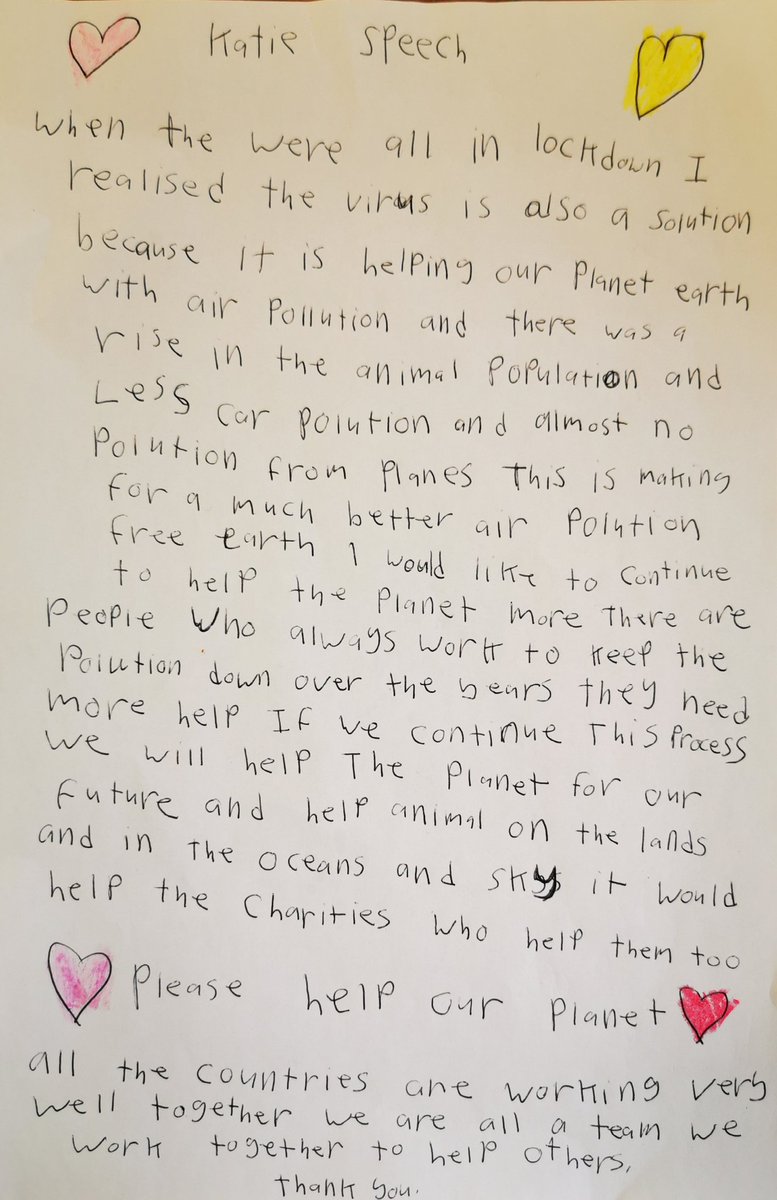 Katie Speech
when the were all in lockdown I
realised the virus is also a solution
because it is helping our Planet earth
with air Pollution and there was a
rise in the animal Population and
Less car polution and almost no
Polution from Planes This is making
for a much better air Polution
free earth I would like to continue
to help the Planet more There are
People who always work to keep the
Polution down over the years they need
more help If we continue This Process
we will help The Planet for our
future and help animal on the lands
and in The oceans and sky it would
help the Charities who help them too
Please help our Planet
all the countries are working very
well together we are all a team we
work together to help others,
Thank you.